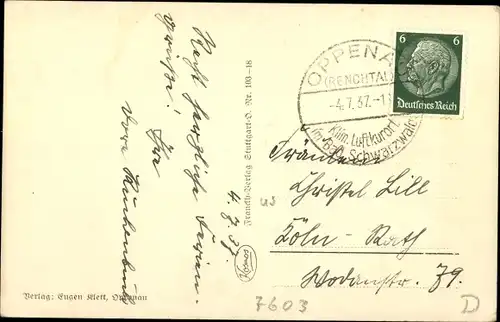 Recht herzliche Ferien-
grüße! Ihr
4.7.37.
Verlag: Eugen Klett, Oppenau
Franckh-Verlag Stuttgart-O. Nr. 103-18
Kosmos
OPPENAU
(RENCHTAL)
-4.7.37.-1
Klim. Luftkurort
im Bad. Schwarzwald
6 6
Deutsches Reich
Fräulein
Christel Lill
Köln-Rath
Wodanstr. 79.
7603
D